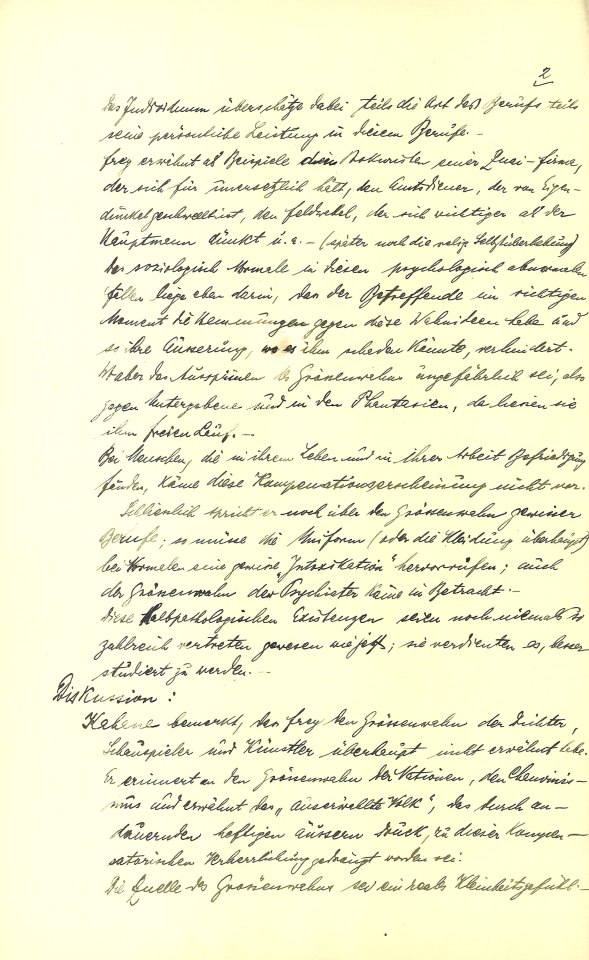 2
Das Individuum überschätze dabei teils die Art des Berufs teils
seine persönliche Leistung in diesem Berufe.-
Frey erwähnt als Beispiele den Prokuristen einer Zwei-firma,
der sich für unersetzlich hält, den Amtsdiener, der von Eigen-
dünkel geschwellt ist, den Feldwebel, der sich wichtiger als der
Hauptmann dünkt u.a.- (später noch die relig. Selbstüberhebung)
Das soziologisch Normale in diesen psychologisch abnormalen
Fällen liege eben darin, dass der Betreffende im richtigen
Moment die Hemmungen gegen diese Wahnideen habe und
so ihre Äusserung, wo es ihm schaden könnte, verhindert.
Wo aber das Aussprechen des Grössenwahns ungefährlich sei, also
gegen Untergebene und in den Phantasien, da liessen sie
ihm freien Lauf.-
Bei Menschen, die in ihrem Leben und in ihrer Arbeit Befriedigung
fänden, käme diese Kompensationserscheinung nicht vor.
Schliesslich spricht er noch über den Grössenwahn gewisser
Berufe; so müsse die Uniform (oder die Kleidung überhaupt)
bei Normalen eine gewisse „Intoxikation" hervorrufen; auch
der Grössenwahn der Psychiater käme in Betracht.-
Diese halbpathologischen Existenzen seien noch niemals so
zahlreich vertreten gewesen wie jetzt; sie verdienten es, besser
studiert zu werden.-
Diskussion:
bemerkt, dass Frey den Grössenwahn der Dichter,
Schauspieler und Künstler überhaupt nicht erwähnt habe.
Er erinnert an den Grössenwahn der Nationen, den Chauvinis-
mus und erwähnt das „auserwählte Volk", das durch an-
dauernden heftigen äussern Druck, zu dieser Kompen-
satorischen Verherrlichung gedrängt worden sei.
Die Quelle des Grössenwahns sei ein reales Kleinheitsgefühl.-